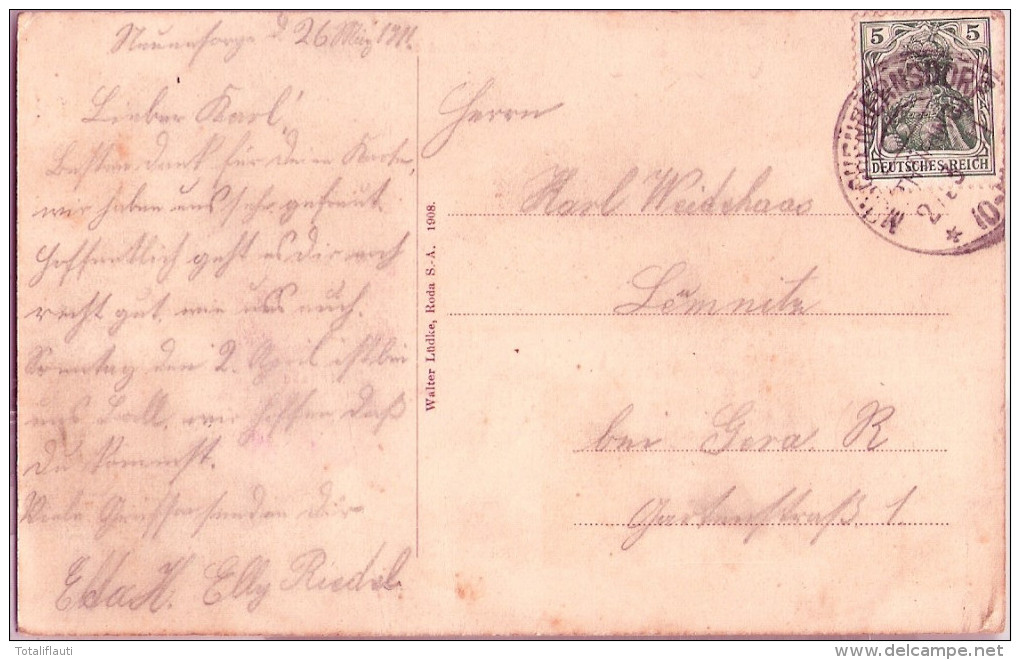 d 26 März 1911.
Lieber Karl!
Besten Dank für deine Karte,
wir haben uns sehr gefreut.
Hoffentlich geht es dir noch
recht gut, wie uns auch.
Sonntag den 2. April ist bei
uns Ball, wir hoffen daß
du kommst.
Viele Grüsse senden dir
Elly Riedel
Herrn
Karl Weidhaas
bei Gera R
Gartenstraß 1.
Walter Lüdke, Roda S.-A. 1908.
5 5
DEUTSCHES REICH
Totaliflauti
www.delcampe.net